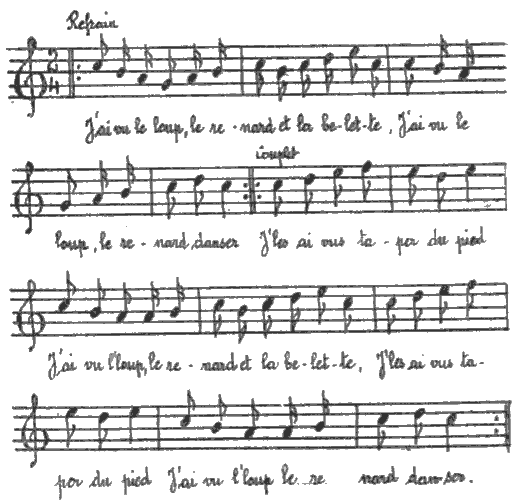 Refrain
2
4
J'ai vu le loup, le re - nard et la be-let-te, J'ai vu le
couplet
loup, le re - nard danser J'les ai vus ta - per du pied
J'ai vu l'loup, le re - nard et la be-let-te, J'les ai vus ta-
per du pied J'ai vu l'loup le re nard dan-ser.